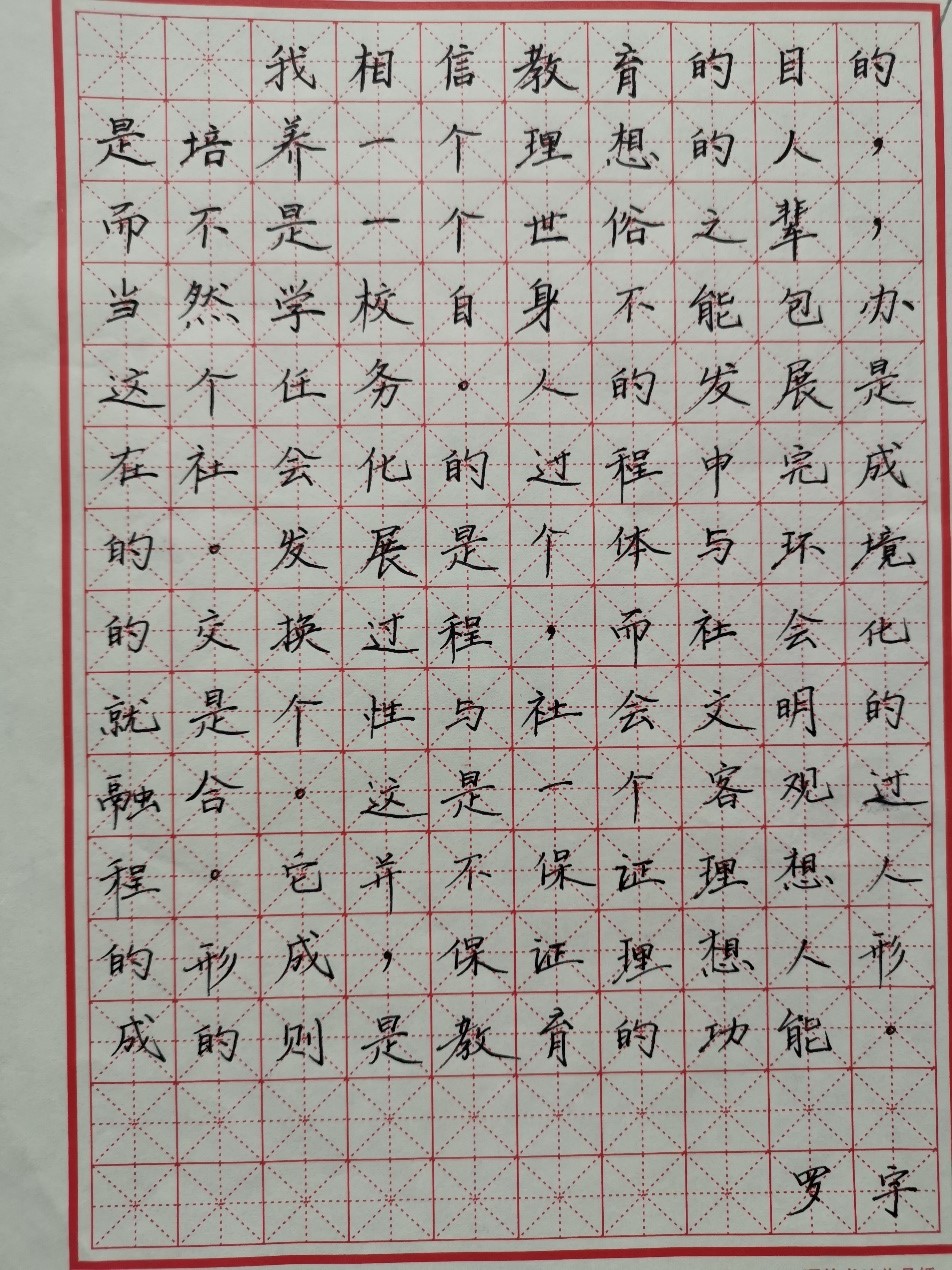 我相信教育的目的
是培养一个理想的人，
而不是一个世俗之辈，
当然学校自身不能包办
这个任务。人的发展是
在社会化的过程中完成
的。发展是个体与环境
的交换过程，而社会化
就是个性与社会文明的
融合。这是一个客观过
程。它并不保证理想人
的形成，保证理想人形
成的则是教育的功能。
罗字